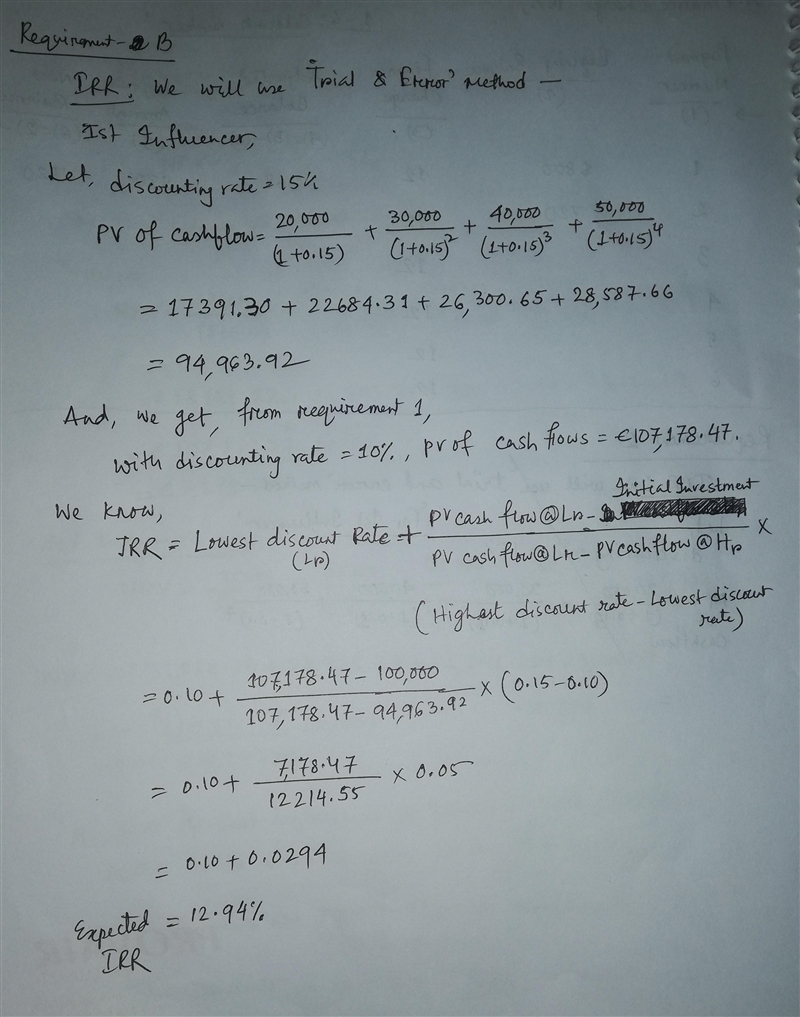 Requirement - B
IRR: We will use Trial & Error' Method —
Ist Influencer,
Let, discounting rate = 15%
PV of cashflow = 20,000/(1+0.15) + 30,000/(1+0.15)^2 + 40,000/(1+0.15)^3 + 50,000/(1+0.15)^4
= 17391.30 + 22684.31 + 26,300.65 + 28,587.66
= 94,963.92
And, we get, from requirement 1,
with discounting rate = 10%., PV of cash flows = €107,178.47.
We know,
IRR = Lowest discount Rate (Lr) + (PV cash flow @ Lr - Initial Investment)/(PV cash flow @ Lr - PV cash flow @ Hr) ×
(Highest discount rate - Lowest discount rate)
= 0.10 + (107,178.47 - 100,000)/(107,178.47 - 94,963.92) × (0.15-0.10)
= 0.10 + 7,178.47/12214.55 × 0.05
= 0.10 + 0.0294
Expected IRR = 12.94%